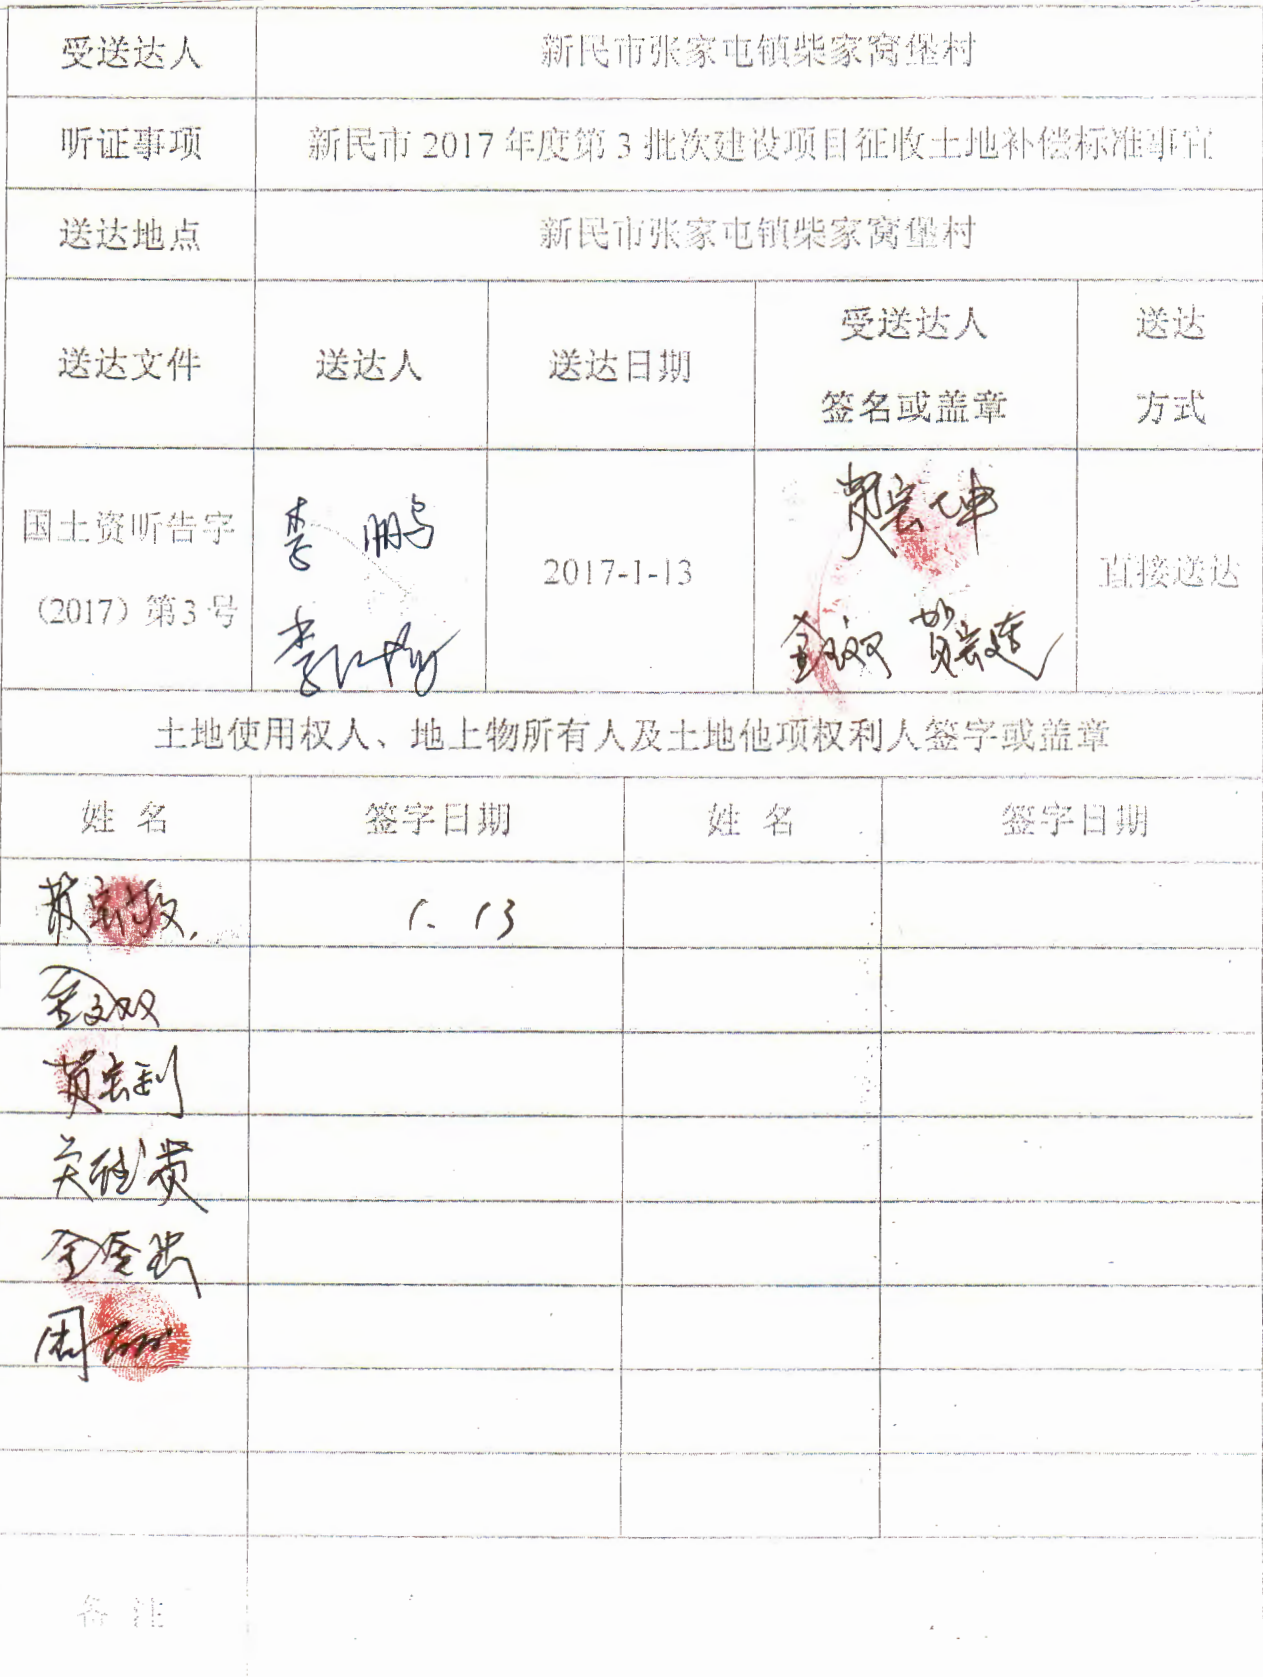 受送达人 新民市张家屯镇柴家窝堡村
听证事项 新民市 2017 年度第 3 批次建设项目征收土地补偿标准事宜
送达地点 新民市张家屯镇柴家窝堡村
送达文件 送达人 送达日期 受送达人 送达
签名或盖章 方式
国土资听告字
（2017）第3号
李鹏
李
2017-1-13
金文双
直接送达
土地使用权人、地上物所有人及土地他项权利人签字或盖章
姓 名 签字日期 姓 名 签字日期
1. 13
金文双
周
备 注